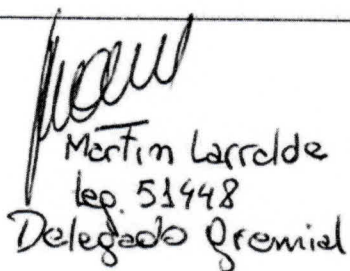 Martin Larralde
leg. 51448
Delegado Gremial